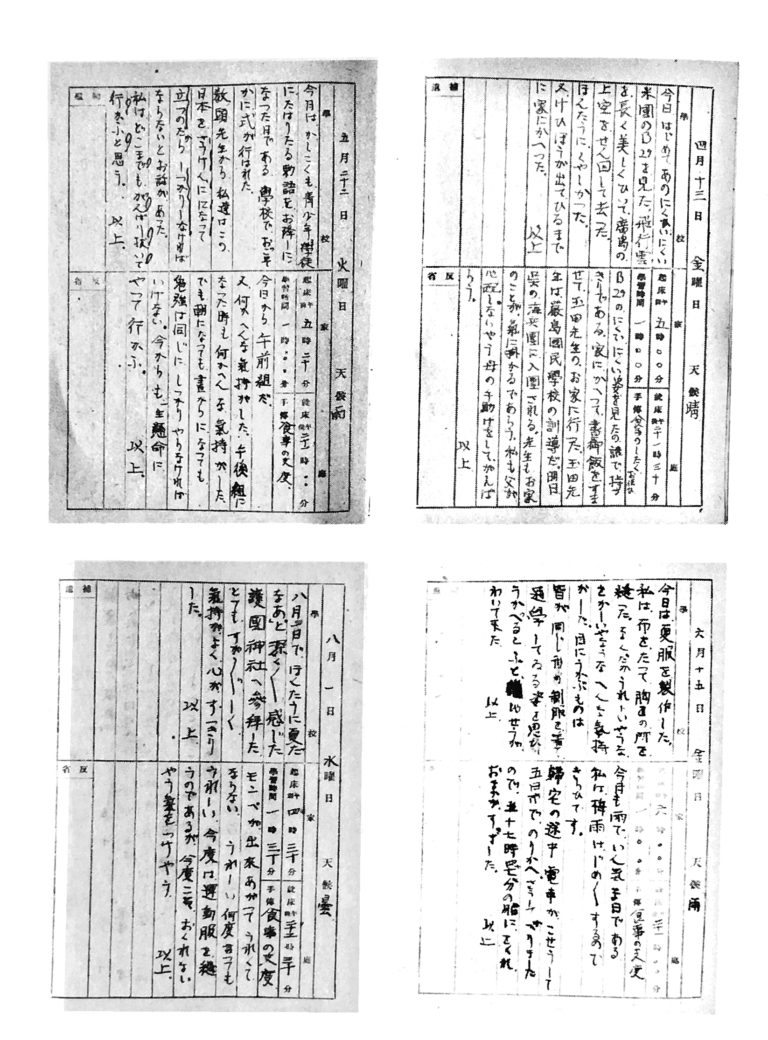 四月十三日 金曜日 天候 晴
學校
今日はじめてあのにくいにくい
米國のB29を見た。飛行雲
を長く美しくひいて、廣島の
上空をせん回して去った。
ほんたうにくやしかった。
又けひほうが出てひるまで
に家にかへった。 以上
補遺
家庭
起床午前 五時二〇分 就床午後 十一時三十分
學習時間 一時〇〇分 手傳 食事のしたく
B29のにくいにくい姿を見たの話で、持ち
きりである。家にかへって、晝御飯をすま
せて、玉田先生のお家に行った。玉田先
生は嚴島國民學校の訓導だ。明日
呉の海兵團に入團される。先生もお家
のことが氣に掛かるであらう。私も父が
心配しないやう母の手助けをして、がんば
らう。
以上
反省
五月二十二日 火曜日 天候 雨
學校
今日は、かしこくも青少年學徒
にたはりたる勅語をお降しに
なった日である。學校でお
かに式が行はれた。
教頭先生から私達はこの
日本をせうけんになって
立つのだから、しっかりしなければ
ならないとお話があった。
私はどこまでもがんばり抜いて
行かふと思う。 以上。
補遺
家庭
起床午前 五時二十分 就床午後 二十一時〇〇分
學習時間 一時〇〇分 手傳 食事の支度、
今日から午前組だ。
又、何かへんな氣持がした。午後組に
なった時も何かへんな氣持がした。
でも朝になっても晝からになっても
勉強は同じにしっかりやらなければ
いけない。今からも一生懸命に
やって行かふ。 以上。
反省
六月十五日 金曜日 天候 雨
學校
今日は、夏服を製作した。
私は、布をたって、胸當の所を
縫った。なんだかうれしいやうな
はづかしいやうな、へんな氣持
がした。目にうかぶものは
皆が同じ形の制服を着て
通學してゐる姿を思ひ
うかべると、ふとびせうが
わいて來た 以上
家庭
一時〇〇分 食事の支度
今日も雨で、いん氣な日である
私は、梅雨はじめ〳〵するので
きらひです。
歸宅の途中、電車がこせうして
五日市で、のりかへさせられました
ので、五十七時四十分の船に、をくれ
おまちがすぎました。 以上
八月一日 水曜日 天候 曇
學校
八月一日で、ほんたうに夏だ
なあ」と深く〳〵感じた
護國神社へ参拜した
とてもすが〳〵しく
氣持がよく心がすっきり
した。 以上
補遺
家庭
起床午前 四時三十分 就床午後 二十一時三十分
學習時間 一時三十分 手傳 食事の支度
モンペが出來あがって、うれしくて
ならない うれしい何度言っても
うれしい。今度は運動服を縫
うのであるが、今度こそ、おくれない
やう氣をつけやう 以上、
反省